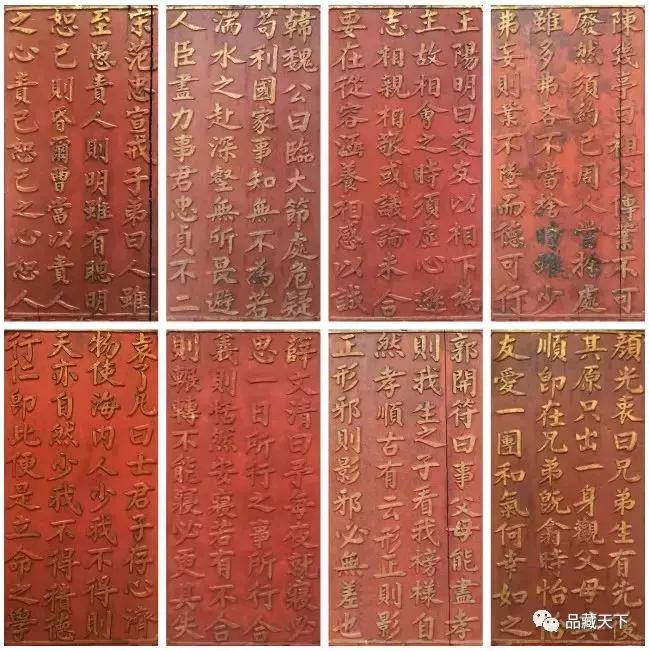 陳幾亭曰祖父傳業不可
廢然須約己周人當捨處
雖多弗吝不當捨時雖少
弗妄則業不墜而德可行
王陽明曰交友以相下為
主故相會之時須虛心遜
志相親相敬或議論未合
要在從容涵養相感以誠
韓魏公曰臨大節處危疑
苟利國家事知無不為若
湍水之赴深壑無所畏避
人臣盡力事君忠貞不二
宋范忠宣戒子弟曰人雖
至愚責人則明雖有聰明
恕己則昏爾曹當以責人
之心責己恕己之心恕人
顏光衷曰兄弟生有先後
其原只出一身觀父母其
順即在兄弟既翕時怡怡
友愛一團和氣何幸如之
郭開符曰事父母能盡孝
則我生之子看我榜樣自
然孝順古有云形正則影
正形邪則影邪必無差也
薛文清曰予每夜就寢必
思一日所行之事所行合
義則恬然安寢若有不合
則輾轉不能寢必更其失
袁了凡曰士君子存心濟
物使海內人少我不得則
天亦自然少我不得積德
行仁即此便是立命之學
品藏天下